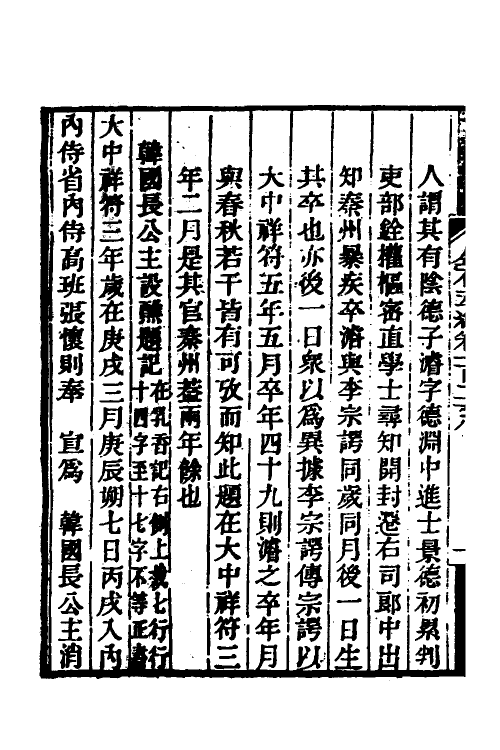 人謂其有陰德子濬字德淵中進士景德初累判
吏部銓權樞密直學士尋知開封遷右司郎中出
知秦州暴疾卒濬與李宗諤同歲同月後一日生
其卒也亦後一日衆以爲異據李宗諤傳宗諤以
大中祥符五年五月卒年四十九則濬之卒年月
與春秋若干皆有可攷而知此題在大中祥符三
年二月是其官秦州葢兩年餘也
韓國長公主設醮題記在乳香記右側上截七行行十四字至十七字不等正書
大中祥符三年歲在庚戌三月庚辰朔七日丙戌入內
內侍省內侍高班張懷則奉　宣爲　韓國長公主消